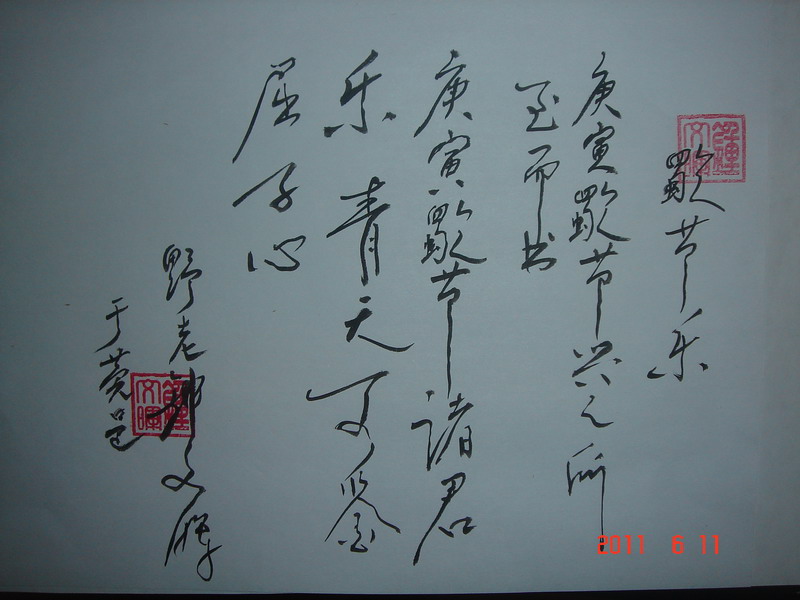 歜节乐
庚寅歜节兴之所
至而书
庚寅歜节诸君
乐 青天鉴
屈子心
野老文晖
于莞邑
2011 6 11